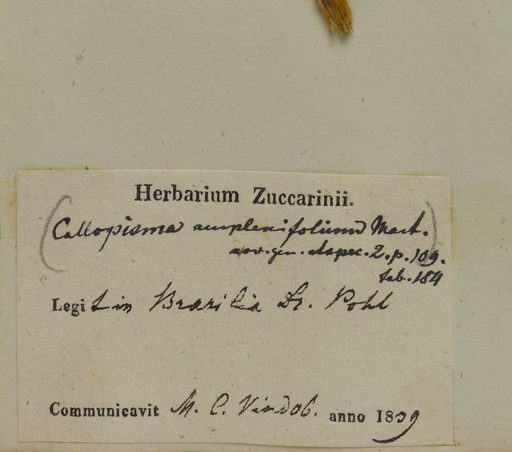 Herbarium Zuccarinii.
(Callopisma amplexifolium Mart.)
nov. gen. et spec. 2. p. 109.
tab. 184
Legit in Brasilia Dr. Pohl
Communicavit M. C. Vindob. anno 1839